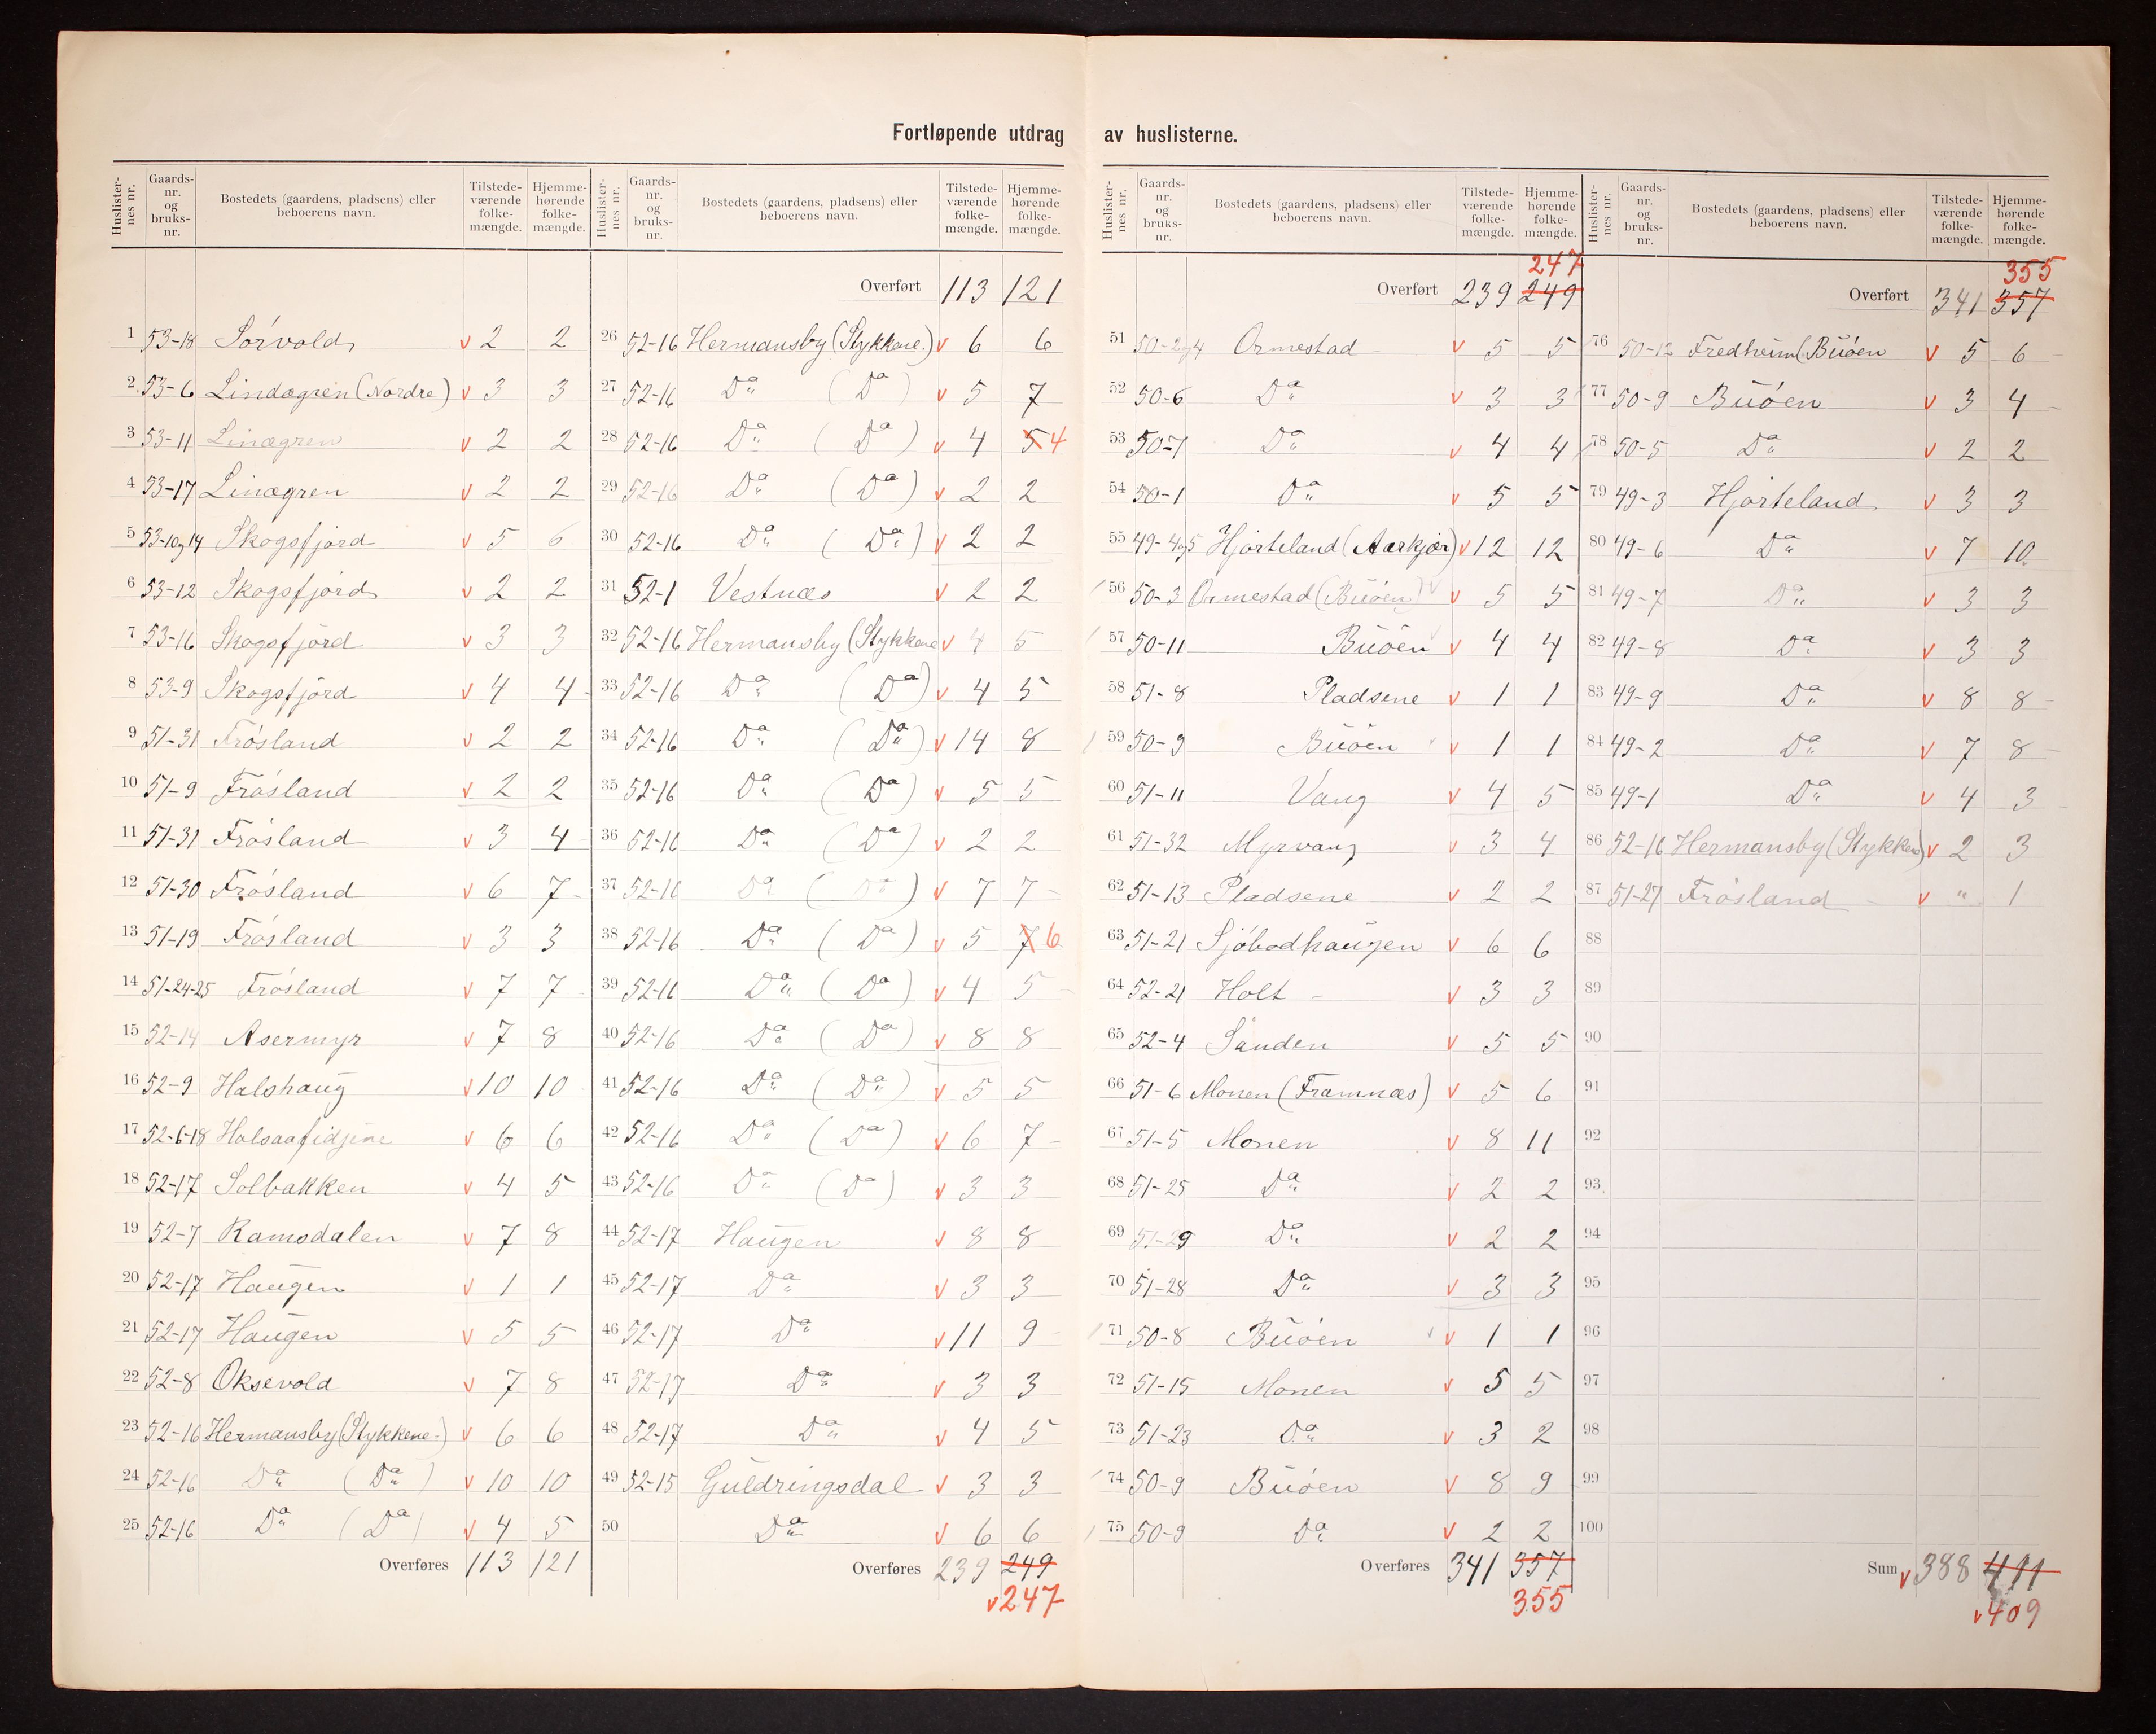 Fortløpende utdrag av huslisterne.
Huslisternes nr. Gaards-nr. og bruks-nr. Bostedets (gaardens, pladsens) eller beboerens navn. Tilstede-værende folke-mængde. Hjemme-hørende folke-mængde.
1 53-18 Sörvold v 2 2
2 53-6 Lindøgren (Nordre) v 3 3
3 53-11 Linøgren v 2 2
4 53-17 Linøgren v 2 2
5 53-10og14 Skogsfjord v 5 6
6 53-12 Skogsfjord v 2 2
7 53-16 Skogsfjord v 3 3
8 53-9 Skogsfjord v 4 4
9 51-31 Frösland v 2 2
10 51-9 Frösland v 2 2
11 51-31 Frösland v 3 4
12 51-30 Frösland v 6 7
13 51-19 Frösland v 3 3
14 51-24-25 Frösland v 7 7
15 52-14 Asermyr v 7 8
16 52-9 Halshaug v 10 10
17 52-6-18 v 6 6
18 52-17 Solbakken v 4 5
19 52-7 Ramsdalen v 7 8
20 52-17 Haugen v 1 1
21 52-17 Haugen v 5 5
22 52-8 Oksevold v 7 8
23 52-16 Hermansby (Stykkene.) v 6 6
24 52-16 Da (Da) v 10 10
25 52-16 Da (Da) v 4 5
Overføres 113 121
Huslisternes nr. Gaards-nr. og bruks-nr. Bostedets (gaardens, pladsens) eller beboerens navn. Tilstede-værende folke-mængde. Hjemme-hørende folke-mængde.
Overført 113 121
26 52-16 Hermansby (Stykkene.) v 6 6
27 52-16 Da (Da) v 5 7
28 52-16 Da (Da) v 4 5 4
29 52-16 Da (Da) v 2 2
30 52-16 Da (Da) v 2 2
31 52-1 Vestnæs v 2 2
32 52-16 Hermansby (Stykkene v 4 5
33 52-16 Da (Da) v 4 5
34 52-16 Da (Da) v 14 8
35 52-16 Da (Da) v 5 5
36 52-16 Da (Da) v 2 2
37 52-16 Da (Da) v 7 7
38 52-16 Da (Da) v 5 7 6
39 52-16 Da (Da) v 4 5
40 52-16 Da (Da) v 8 8
41 52-16 Da (Da) v 5 5
42 52-16 Da (Da) v 6 7
43 52-16 Da (Da) v 3 3
44 52-17 Haugen v 8 8
45 52-17 Da v 3 3
46 52-17 Da v 11 9
47 52-17 Da v 3 3
48 52-17 Da v 4 5
49 52-15 Guldringsdal v 3 3
50 Da v 6 6
Overføres 239 249
v 247
Huslisternes nr. Gaards-nr. og bruks-nr. Bostedets (gaardens, pladsens) eller beboerens navn. Tilstede-værende folke-mængde. Hjemme-hørende folke-mængde.
247
Overført 239 249
51 50-2og4 Ormestad v 5 5
52 50-6 Da v 3 3
53 50-7 Da v 4 4
54 50-1 Da v 5 5
55 49-4og5 Hjorteland (Aarkjær) v 12 12
56 50-3 Ormestad (Buöen) v 5 5
57 50-11 Buöen v 4 4
58 51-8 Pladsene v 1 1
59 50-9 Buöen v 1 1
60 51-11 Vang v 4 5
61 51-32 Myrvang v 3 4
62 51-13 Pladsene v 2 2
63 51-21 Sjöbodhaugen v 6 6
64 52-21 Holt v 3 3
65 52-4 Sanden v 5 5
66 51-6 Monen (Framnæs) v 5 6
67 51-5 Monen v 8 11
68 51-25 Da v 2 2
69 51-29 Da v 2 2
70 51-28 Da v 3 3
71 50-8 Buöen v 1 1
72 51-15 Monen v 5 5
73 51-23 Da v 3 2
74 50-9 Buöen v 8 9
75 50-9 Da v 2 2
Overføres 341 357
355
Huslisternes nr. Gaards-nr. og bruks-nr. Bostedets (gaardens, pladsens) eller beboerens navn. Tilstede-værende folke-mængde. Hjemme-hørende folke-mængde.
355
Overført 341 357
76 50-12 Fredheim (Buöen v 5 6
77 50-9 Buöen v 3 4
78 50-5 Da v 2 2
79 49-3 Hjorteland v 3 3
80 49-6 Da v 7 10
81 49-7 Da v 3 3
82 49-8 Da v 3 3
83 49-9 Da v 8 8
84 49-2 Da v 7 8
85 49-1 Da v 4 3
86 52-16 Hermansby (Stykkene) v 2 3
87 51-27 Frösland v " 1
88
89
90
91
92
93
94
95
96
97
98
99
100
Sum v 388 411
v 409